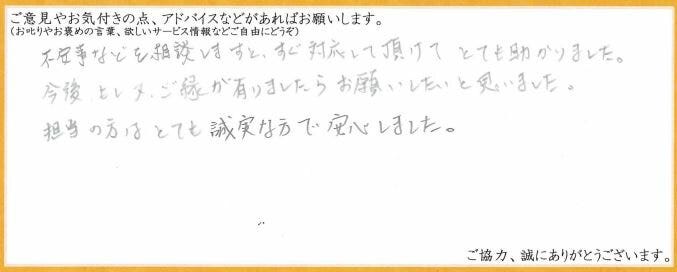 ご意見やお気付きの点、アドバイスなどがあればお願いします。
(お叱りやお褒めの言葉、欲しいサービス情報などご自由にどうぞ)
不安事などを相談しますと、すぐ対応して頂けて とても助かりました。
今後、もし又、ご縁が有りましたらお願いしたいと思いました。
担当の方はとても誠実な方で安心しました。
ご協力、誠にありがとうございます。